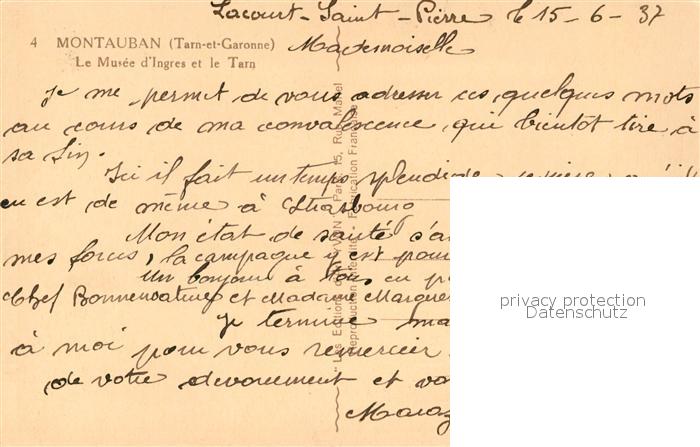 Lacourt-Saint-Pierre le 15-6-37
4 MONTAUBAN (Tarn-et-Garonne)
Le Musée d'Ingres et le Tarn
Mademoiselle
Je me permet de vous adresser ces quelques mots
au cours de ma convalescence, qui bientot tire à
sa fin.
Ici il fait un temps splendide
en est de même à Strasbourg
Mon état de santé s'a
mes forces, la campagne y est pour
Un bonjour à tous en p
Chef Bonnenvature et Madame Margue
Je termine ma
à moi pour vous remercier
de votre devouement et vo
Maraz
"Les Editions d'Art YVON", Paris, 15, Rue Martel
Reproduction interdite Fabrication Française
privacy protection
Datenschutz